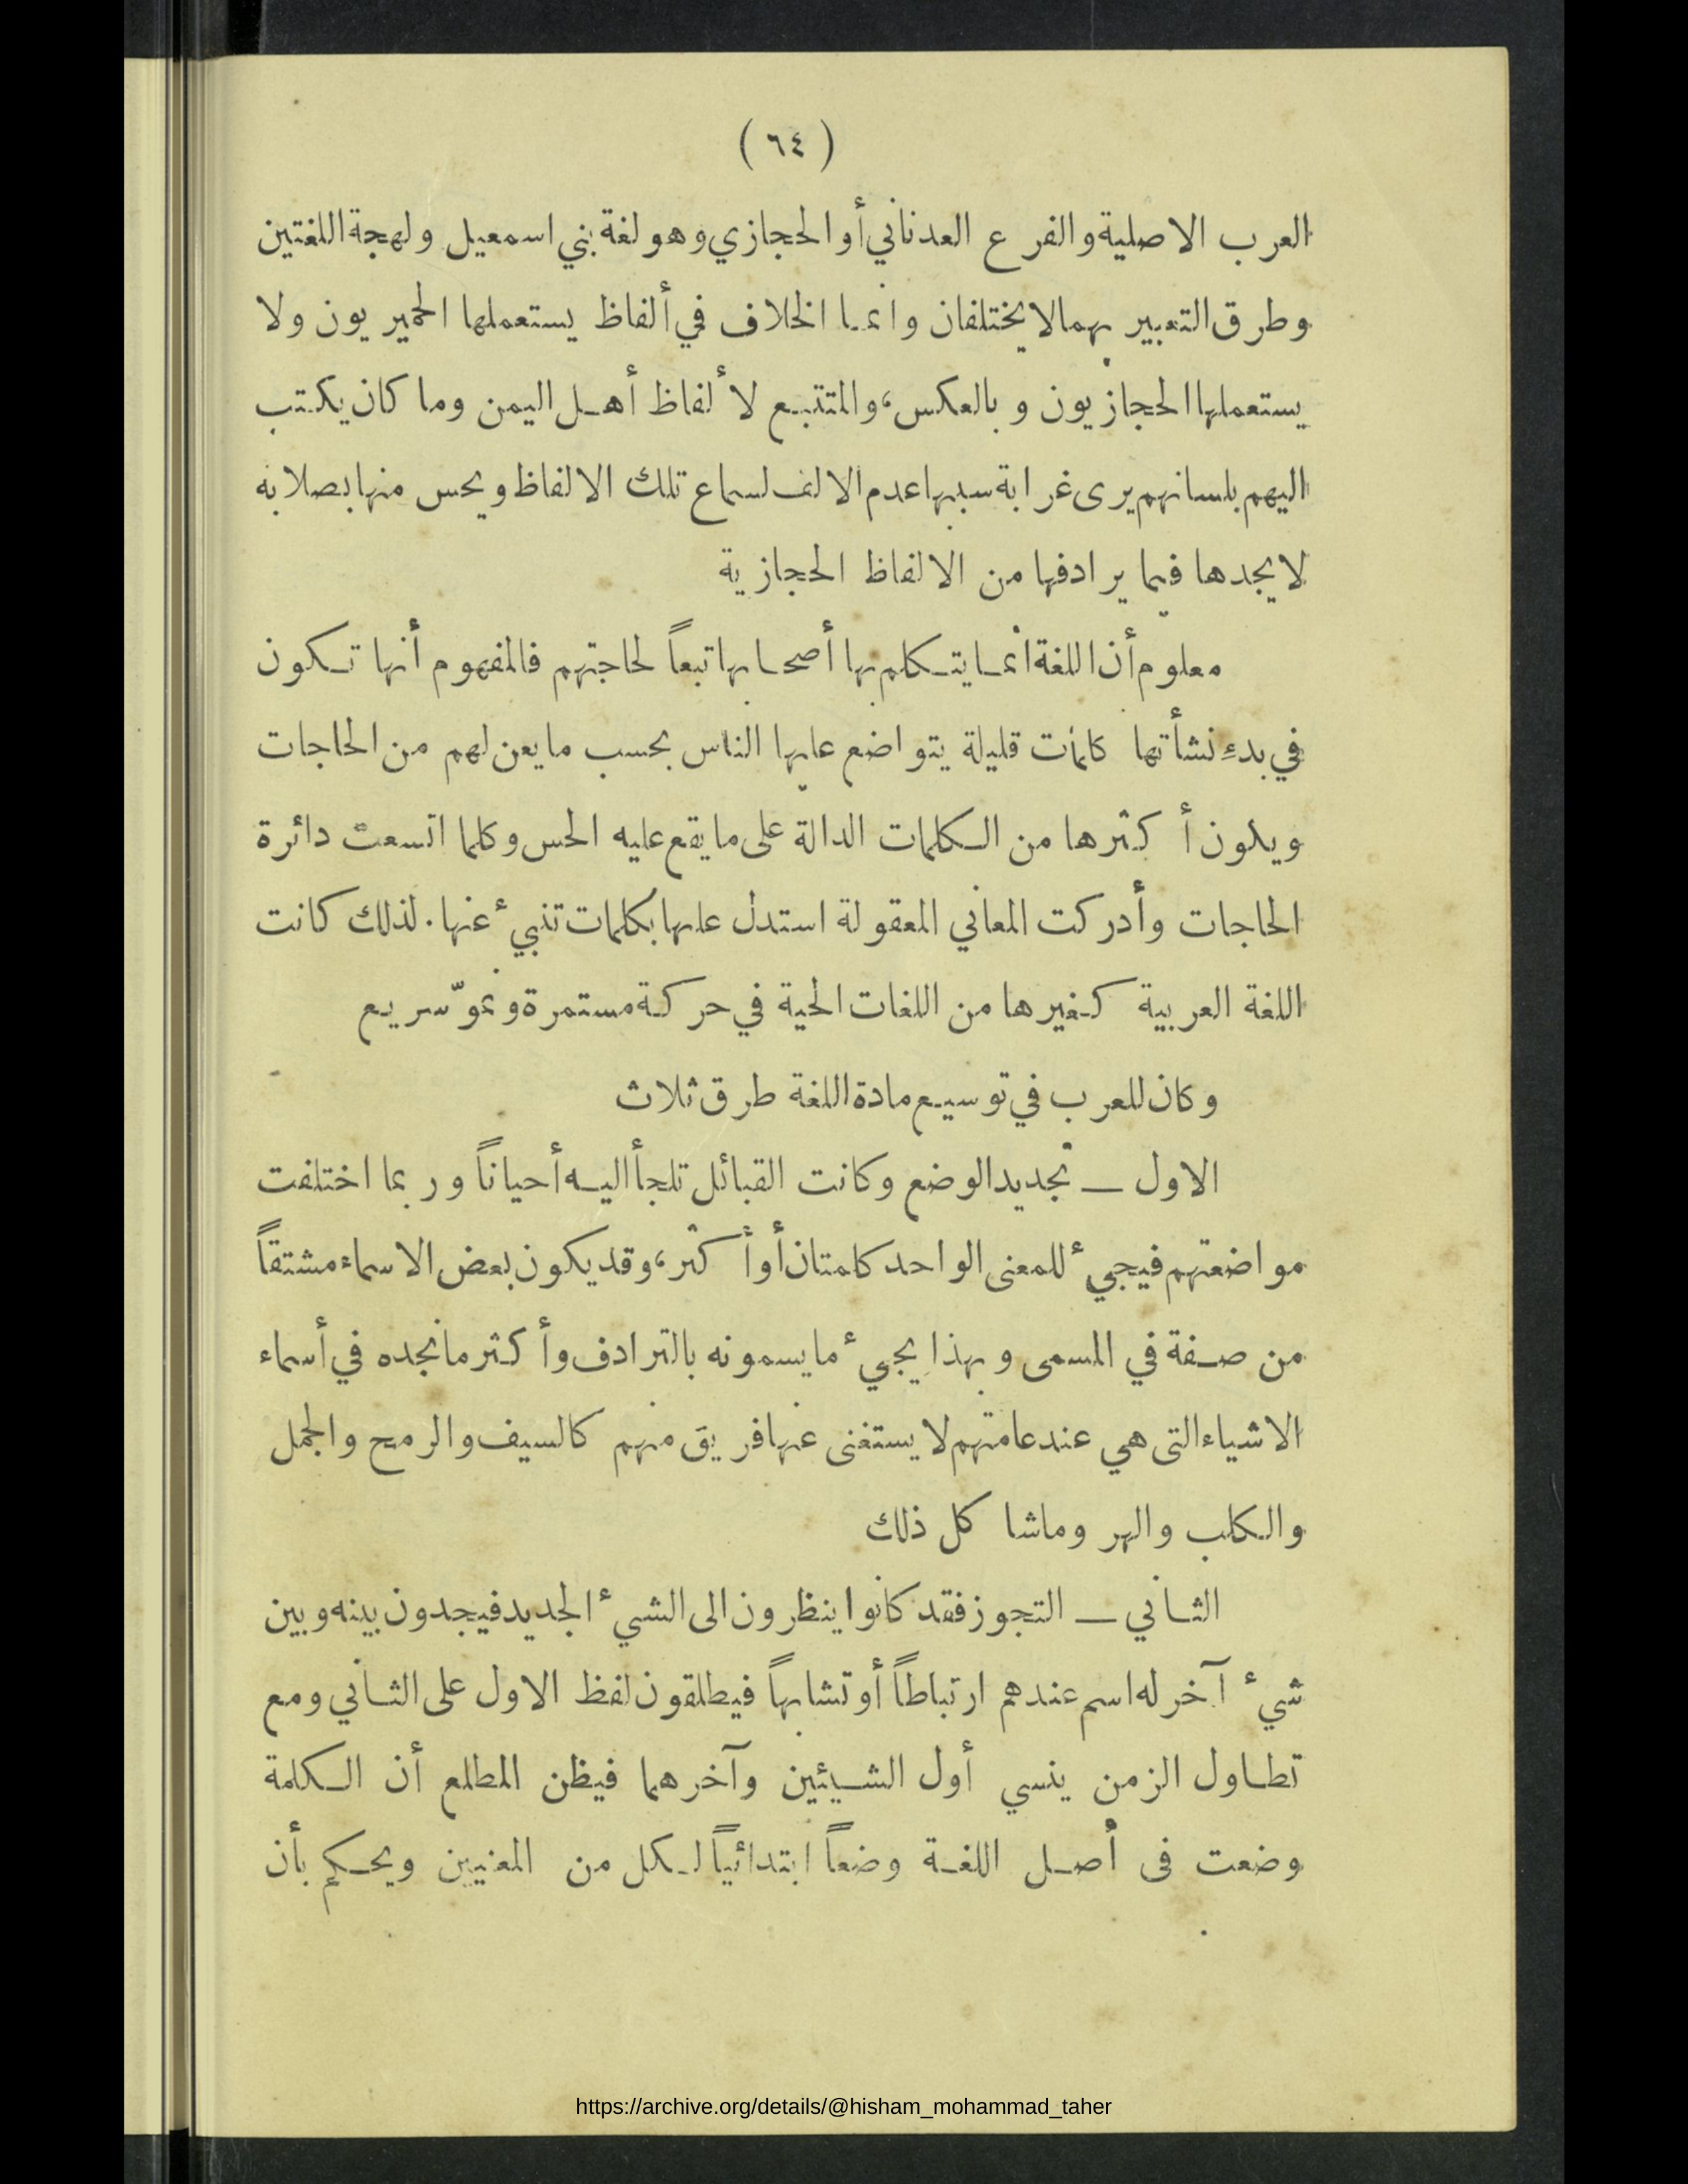 ( ٦٤ )
العرب الاصلية والفرع العدناني أو الحجازي وهو لغة بني اسمعيل ولهجة اللغتين
وطرق التعبير بهما لا يختلفان وانما الخلاف في ألفاظ يستعملها الحميريون ولا
يستعملها الحجازيون وبالعكس، والمتتبع لألفاظ أهل اليمن وما كان يكتب
اليهم بلسانهم يرى غرابة سببها عدم الالف لسماع تلك الالفاظ ويحس منها بصلابة
لا يجدها فيما يرادفها من الالفاظ الحجازية
معلوم أن اللغة انما يتكلم بها أصحابها تبعاً لحاجتهم فالمفهوم أنها تكون
في بدء نشأتها كانت قليلة يتواضع عليها الناس بحسب ما يعن لهم من الحاجات
ويكون أكثرها من الكلمات الدالة على ما يقع عليه الحس وكلما اتسعت دائرة
الحاجات وأدركت المعاني المعقولة استدل عليها بكلمات تنبيء عنها. لذلك كانت
اللغة العربية كغيرها من اللغات الحية في حركة مستمرة ونموّ سريع
وكان للعرب في توسيع مادة اللغة طرق ثلاث
الاول — تجديد الوضع وكانت القبائل تلجأ اليه أحياناً وربما اختلفت
مواضعتهم فيجيء للمعنى الواحد كلمتان أو أكثر، وقد يكون بعض الاسماء مشتقاً
من صفة في المسمى وبهذا يجيء ما يسمونه بالترادف وأكثر ما نجده في أسماء
الاشياء التى هي عند عامتهم لا يستغنى عنها فريق منهم كالسيف والرمح والجمل
والكلب والهر وما شا كل ذلك
الثاني — التجوز فقد كانوا ينظرون الى الشيء الجديد فيجدون بينه وبين
شيء آخر له اسم عندهم ارتباطاً أو تشابهاً فيطلقون لفظ الاول على الثاني ومع
تطاول الزمن ينسي أول الشيئين وآخرهما فيظن المطلع أن الكلمة
وضعت فى أصل اللغة وضعاً ابتدائياً لكل من المعنيين ويحكم بأن
https://archive.org/details/@hisham_mohammad_taher